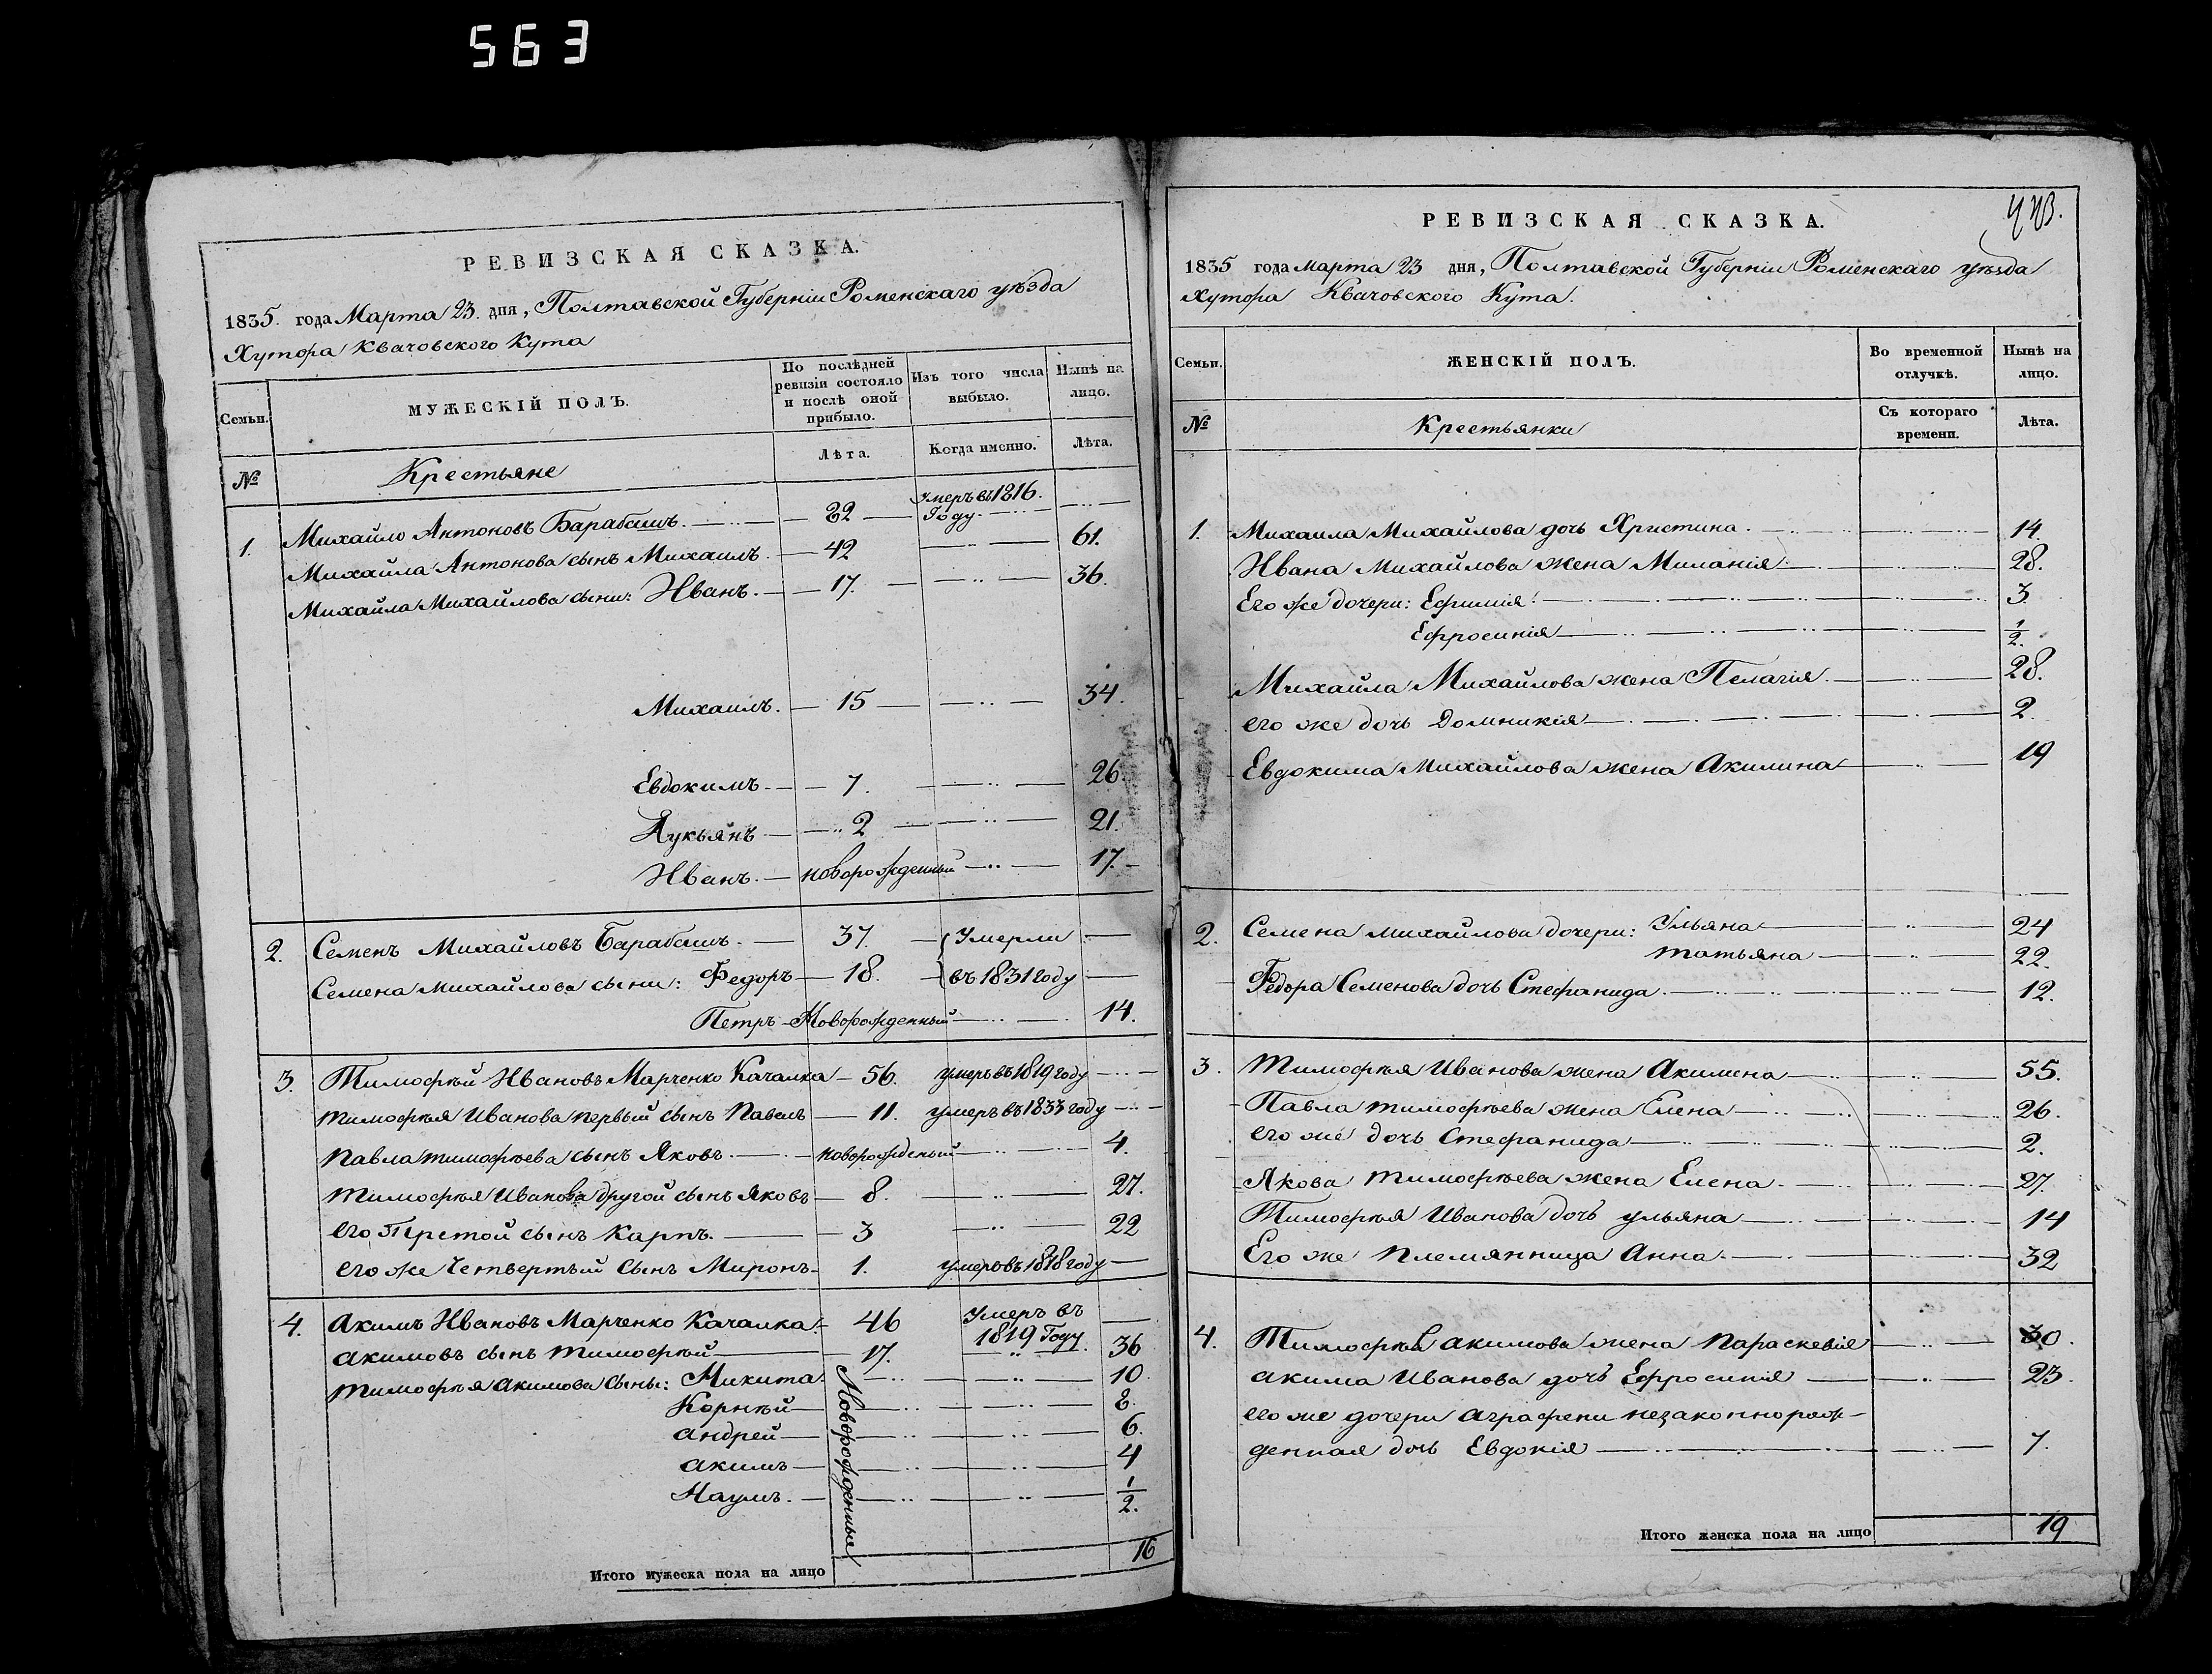 563
РЕВИЗСКАЯ СКАЗКА.
1835. года Марта 23. дня, Полтавской Губерніи Роменскаго уѣзда
Хутора Квачовского Кута
Семьи.
МУЖЕСКІЙ ПОЛЪ.
По послѣдней ревизіи состояло и послѣ оной прибыло.
Изъ того числа выбыло.
Нынѣ на лицо.
№
Крестьяне
Лѣта.
Когда именно.
Лѣта.
1. Михайло Антоновъ Барабашъ. — умеръ въ 1816. Году.
Михайла Антонова сынъ Михаилъ. — 42 — 61.
Михайла Михайлова сыни: Иванъ. — 17. — 36.
Михаилъ. — 15 — 34.
Евдокимъ — 7. — 26
Лукьянъ — 2 — 21.
Иванъ. — новорожденный — 17.
2. Семенъ Михайловъ Барабашъ. — 37. — Умерли
Семена Михайлова сыни: Федоръ — 18. — въ 1831 году
Петръ — Новорожденный — 14.
3. Тимофѣй Ивановъ Марченко Качалка — 56. умеръ въ 1819 году
Тимофѣя Иванова первый сынъ Павелъ — 11. умеръ въ 1833 году
Павла Тимофѣева сынъ Яковъ. — новорожденый — 4.
Тимофѣя Иванова другой сынъ Яковъ — 8. — 27.
его Третой сынъ Карпъ. — 3 — 22
его же Четвертый сынъ Миронъ — 1. умеръ въ 1818 году
4. Акимъ Ивановъ Марченко Качалка. — 46 Умеръ въ 1819 Году.
Акимовъ сынъ Тимофѣй — 17. — 36
Тимофѣя Акимова сыны: Микита — 10.
Корнѣй — 8.
Андрей — 6.
Акимъ — 4
Наумъ. — 1/2.
Новорожденные
Итого мужеска пола на лицо 16
РЕВИЗСКАЯ СКАЗКА.
1835 года Марта 23 дня, Полтавской Губерніи Роменскаго уѣзда
Хутора Квачовского Кута.
Семьи.
ЖЕНСКІЙ ПОЛЪ.
Во временной отлучкѣ.
Нынѣ на лицо.
№
Крестьянки
Съ котораго времени.
Лѣта.
1. Михаила Михайлова дочь Христина. — 14.
Ивана Михайлова жена Миланія — 28.
Его же дочери: Ефимія. — 3.
Ефросинія — 1/2.
Михайла Михайлова жена Пелагія. — 28.
его же дочь Домникія — 2.
Евдокима Михайлова жена Акилина — 19
2. Семена Михайлова дочери: Ульяна — 24
Татьяна — 22.
Федора Семенова дочь Стефанида — 12.
3. Тимофѣя Иванова жена Акилина — 55.
Павла Тимофѣева жена Елена — 26.
его же дочь Стефанида — 2.
Якова Тимофѣева жена Елена. — 27.
Тимофѣя Иванова дочь Ульяна — 14
Его же Племянница Анна. — 32
4. Тимофѣя Акимова жена Параскевія — 30.
Акима Иванова дочь Ефросинія — 23.
его же дочери Аграфени незаконнорож-
денная дочь Евдокія — 7.
Итого женска пола на лицо 19